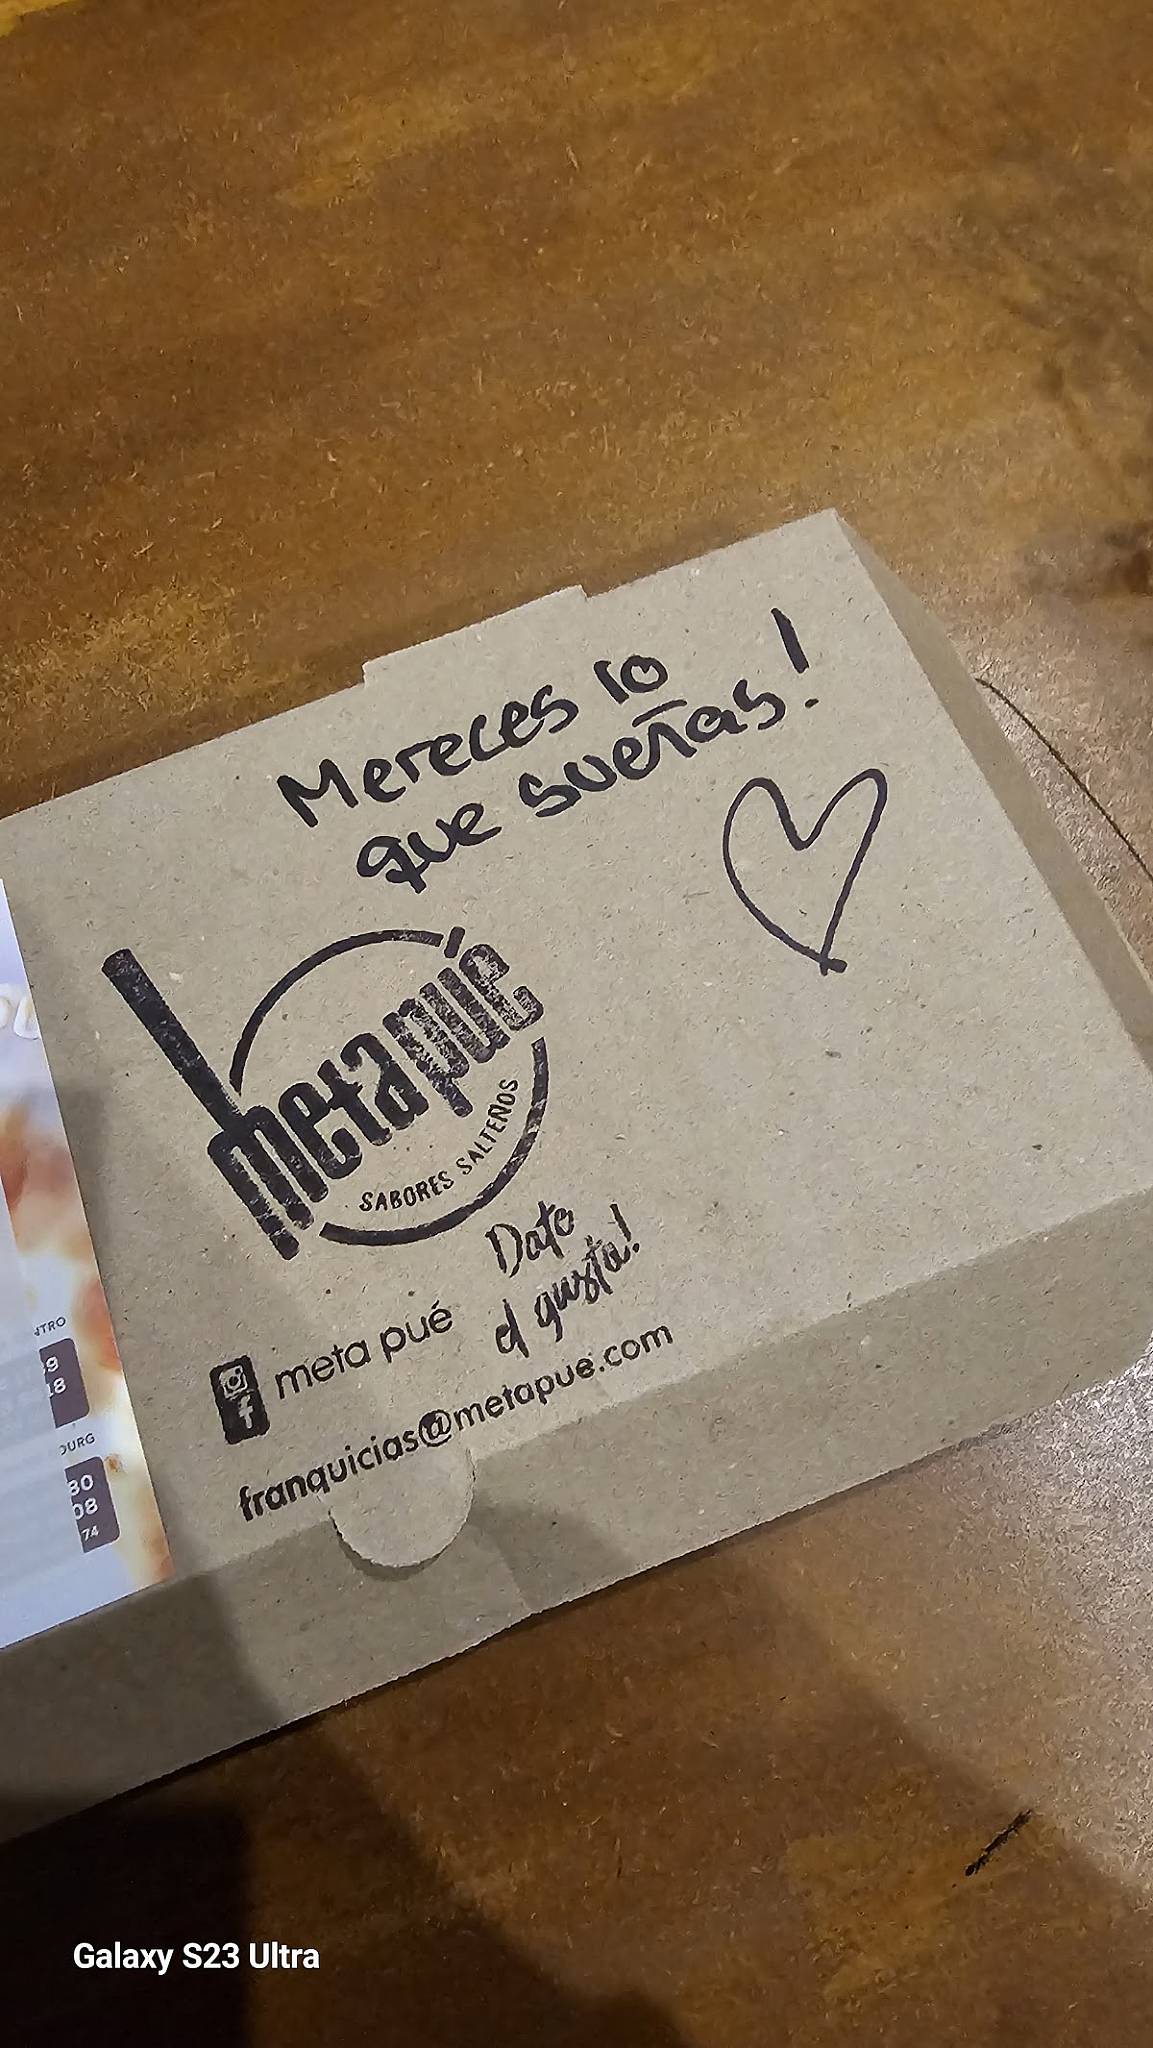 Mereces lo
que sueñas!
metapué
SABORES SALTEÑOS
Date
el gusto!
meta pué
franquicias@metapue.com
NTRO
39
18
OURG
80
08
74
Galaxy S23 Ultra